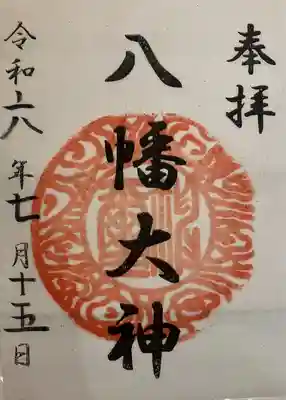 奉拝
八幡大神
令和六年七月十五日